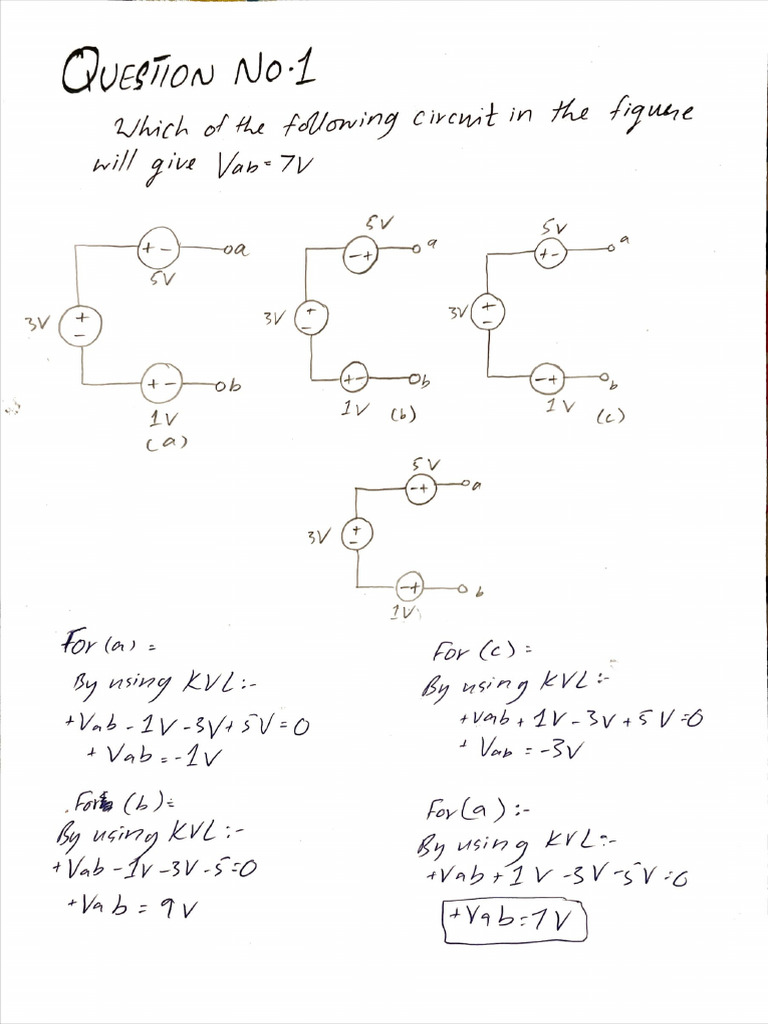 QUESTION NO.1
Which of the following circuit in the figure
will give Vab = 7V
+ -
a
5V
3V
+
-
+ -
b
1V
(a)
5V
- +
a
3V
+
-
+ -
b
1V
(b)
5V
+ -
a
3V
+
-
- +
b
1V
(c)
5V
- +
a
3V
+
-
- +
b
1V
For (a) =
By using KVL:-
+Vab - 1V - 3V + 5V = 0
+ Vab = -1V
For (b) =
By using KVL:-
+Vab - 1V - 3V - 5 = 0
+Vab = 9V
For (c) =
By using KVL:-
+Vab + 1V - 3V + 5V = 0
+ Vab = -3V
For (a) :-
By using KVL:-
+Vab + 1V - 3V - 5V = 0
+Vab = 7V